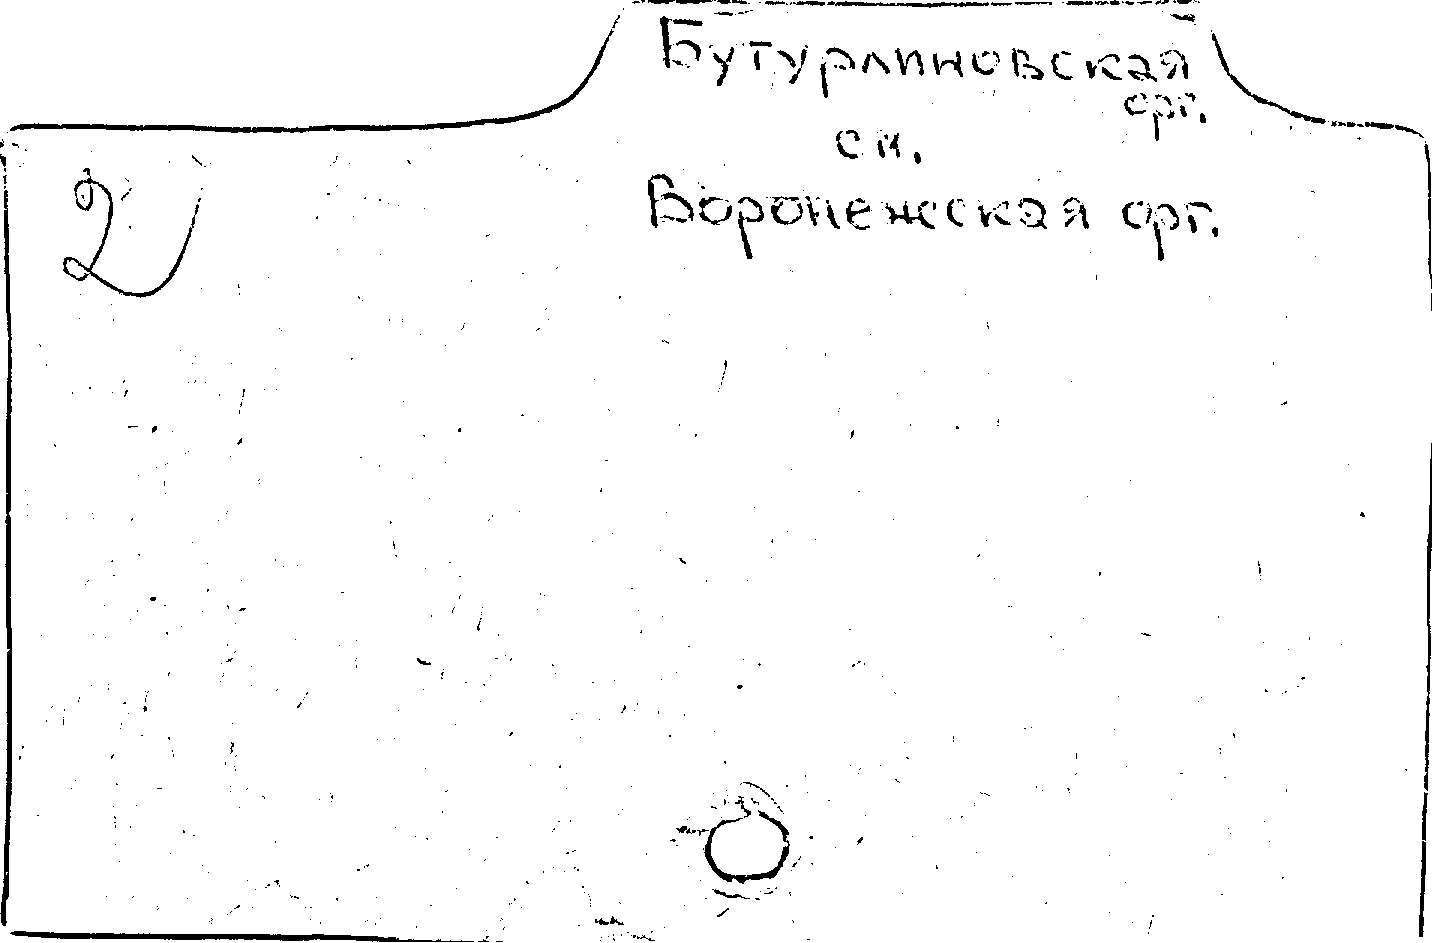 Бутурлиновская
орг.
см.
Воронежская орг.
2